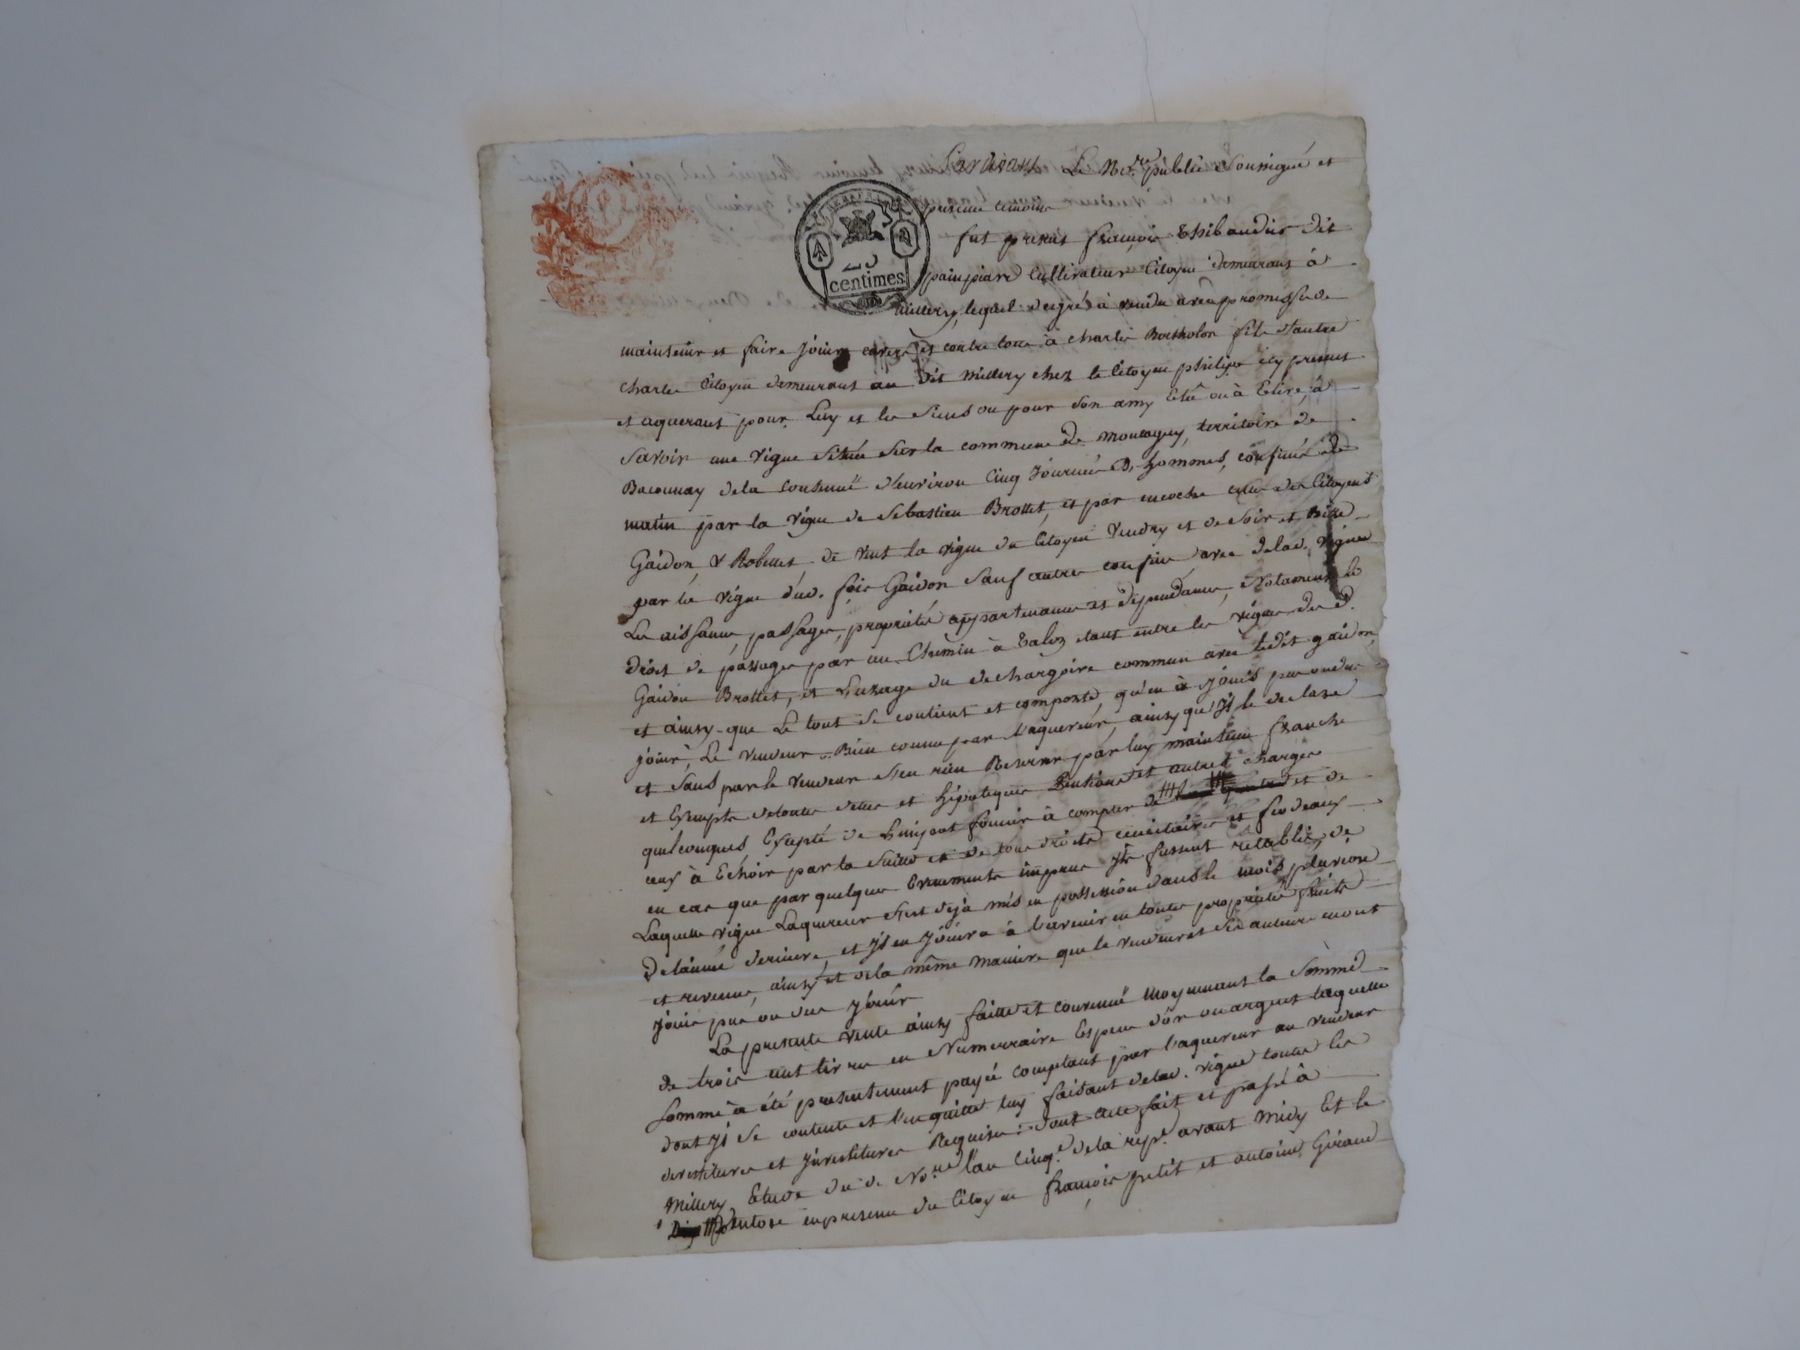 Pardevant Le No.re public Soussigné et
presence temoins
fut present francois Thibaudier dit
cultivateur Citoyen demeurant à
25
centimes
millery, lequel degré à vendu avec promesse de
maintenir et faire jouir envers et contre tous à charles Bertholon fils d'autre
charles Citoyen demeurant au dit millery chez le Citoyen philipe icy present
et aquerant pour Luy et les Siens ou pour son amy Elû ou à Elire, à
Savoir une vigne Située Sur la commune de montagny, territoire de
de la Contenuë d'environ Cinq journées D'hommes, confinée de
matin par la vigne de Sebastien Brottet, et par encoche celle des Citoyens
Gaidon & Robellet, de vent la vigne du Citoyen Vendry et de Soir et Bize
par la vigne dud. Gaidon Sauf autres confins avec de lad. vigne
Les aisances, passages, propriétés appartenances et dependances, Notamment le
droit de passage par un Chemin à Talon etant entre les vignes des d.
Gaidon Brottet, et L'usage du dechargoire commun avec ledit gaidon,
et ainsy que Le tout Se contient et comporte, qu'en à jouis pu ou du
joüir, Le vendeur Bien connu par l'aquereur, ainsy qu'Jl le declare
et Sans par le vendeur S'en rien Reserver par luy maintenu franche
et Exempte de toutes dettes et hipoteques Pensions et autres charges
quelconques Exepté de L'impost foncier à compter de et de
ceux à Echoir par la Suitte et de tous droits et feodeaux
en cas que par quelques Evenements imprevus Jls fussent rettablis, de
Laquelle vigne Laquereur S'est dejà mis en possession dans le mois pluviose
de l'année derniere, et Jl en Jouira à l'avenir en toute propriété fruits
et revenus, ainsy et de la même maniere que le vendeur et Ses auteurs en ont
jouis pu ou du jouir
La presente vente ainsy faitte et convenuë moyennant la Somme
de trois cent livres en Numerraire Espece d'or ou argent laquelle
Somme à été presentement payée comptant par l'aquereur au vendeur
dont Jl Se contente et l'en quitte luy faisant de lad. vigne toutes les
devestitures et Jnvestitures Requises: dont acte fait et passé à
Millery Etude du d. No.re l'an Cinq.e de la rep.e avant midy Et le
Ventose en presence du Citoyen francois petit et antoine Giraud